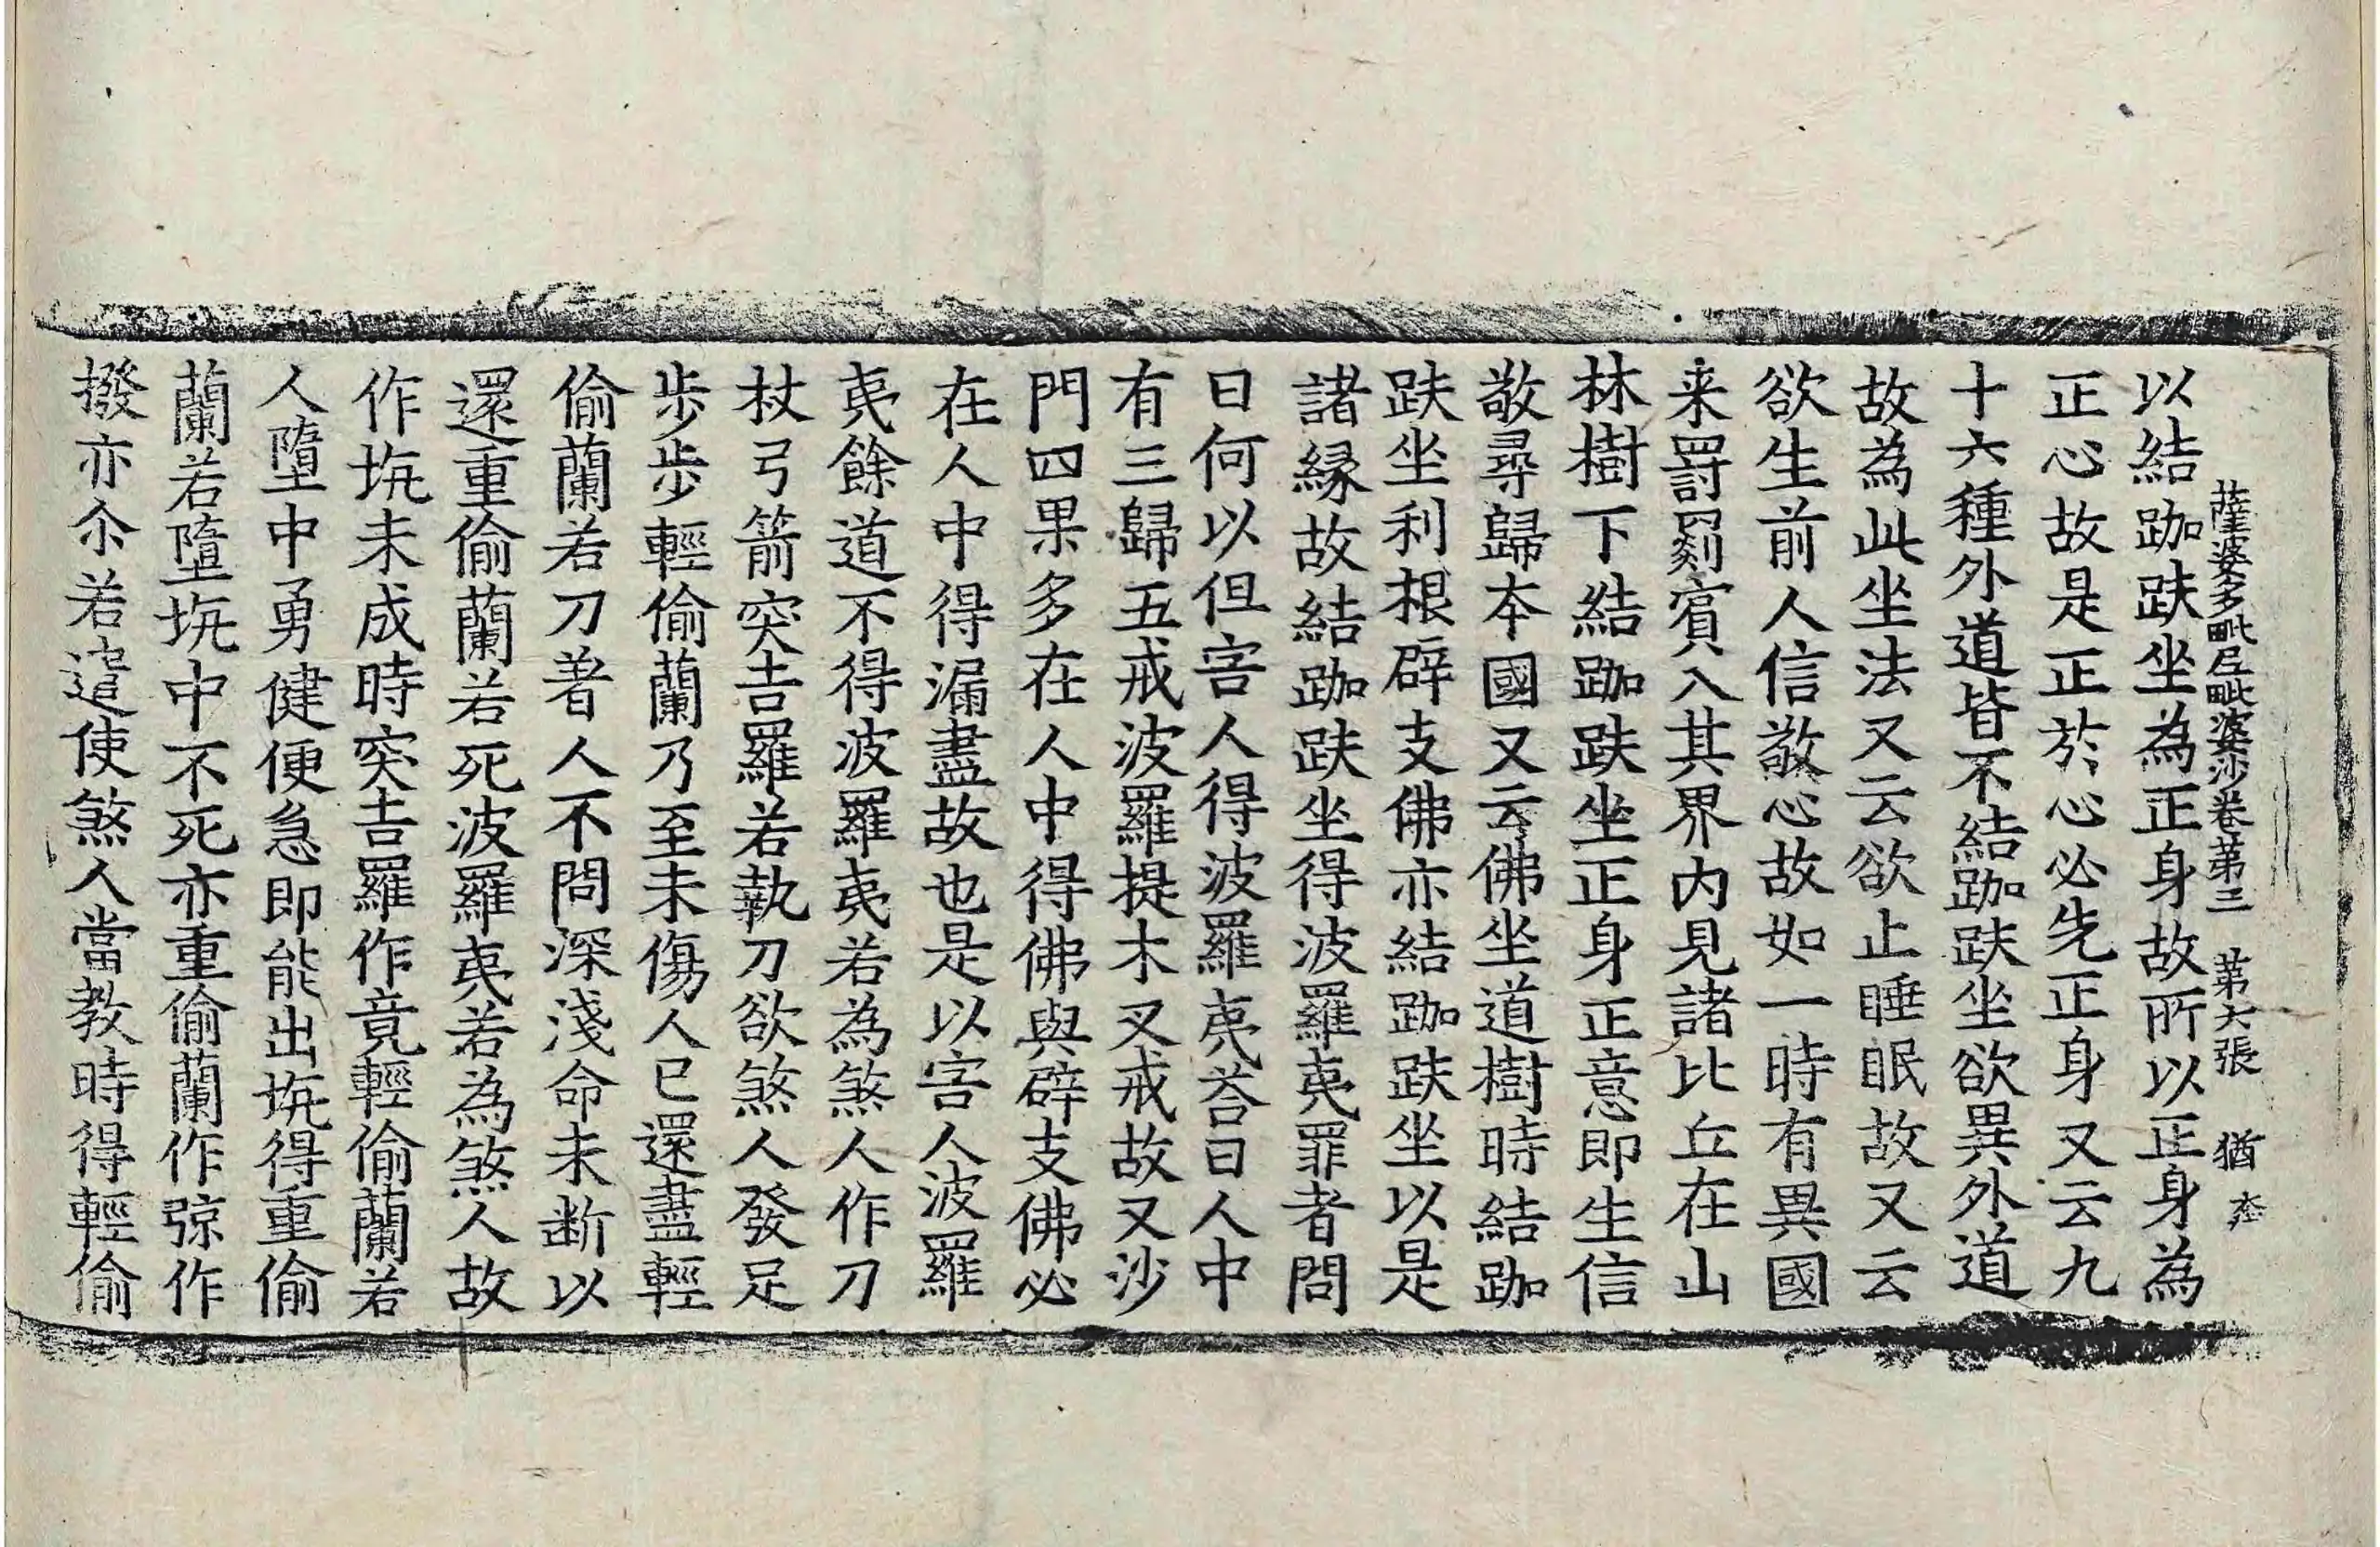 薩婆多毗尼毗婆沙卷第三 第六張 猶
以結跏趺坐為正身故所以正身為
正心故是正於心必先正身又云九
十六種外道皆不結跏趺坐欲異外道
故為此坐法又云欲止睡眠故又云
欲生前人信敬心故如一時有異國
来罸罽賓入其界内見諸比丘在山
林樹下結跏趺坐正身正意即生信
敬尋歸夲國又云佛坐道樹時結跏
趺坐利根辟支佛亦結跏趺坐以是
諸縁故結跏趺坐得波羅夷罪者問
曰何以但害人得波羅夷荅曰人中
有三歸五戒波羅提木叉戒故又沙
門四果多在人中得佛與辟支佛必
在人中得漏盡故也是以害人波羅
夷餘道不得波羅夷若為煞人作刀
杖弓箭突吉羅若執刀欲煞人發足
歩歩輕偷蘭乃至未傷人已還盡輕
偷蘭若刀著人不問深淺命未断以
還重偷蘭若死波羅夷若為煞人故
作坑未成時突吉羅作竟輕偷蘭若
人墮中勇健便急即能出坑得重偷
蘭若墮坑中不死亦重偷蘭作弶作
撥亦尒若遣使煞人當教時得輕偷